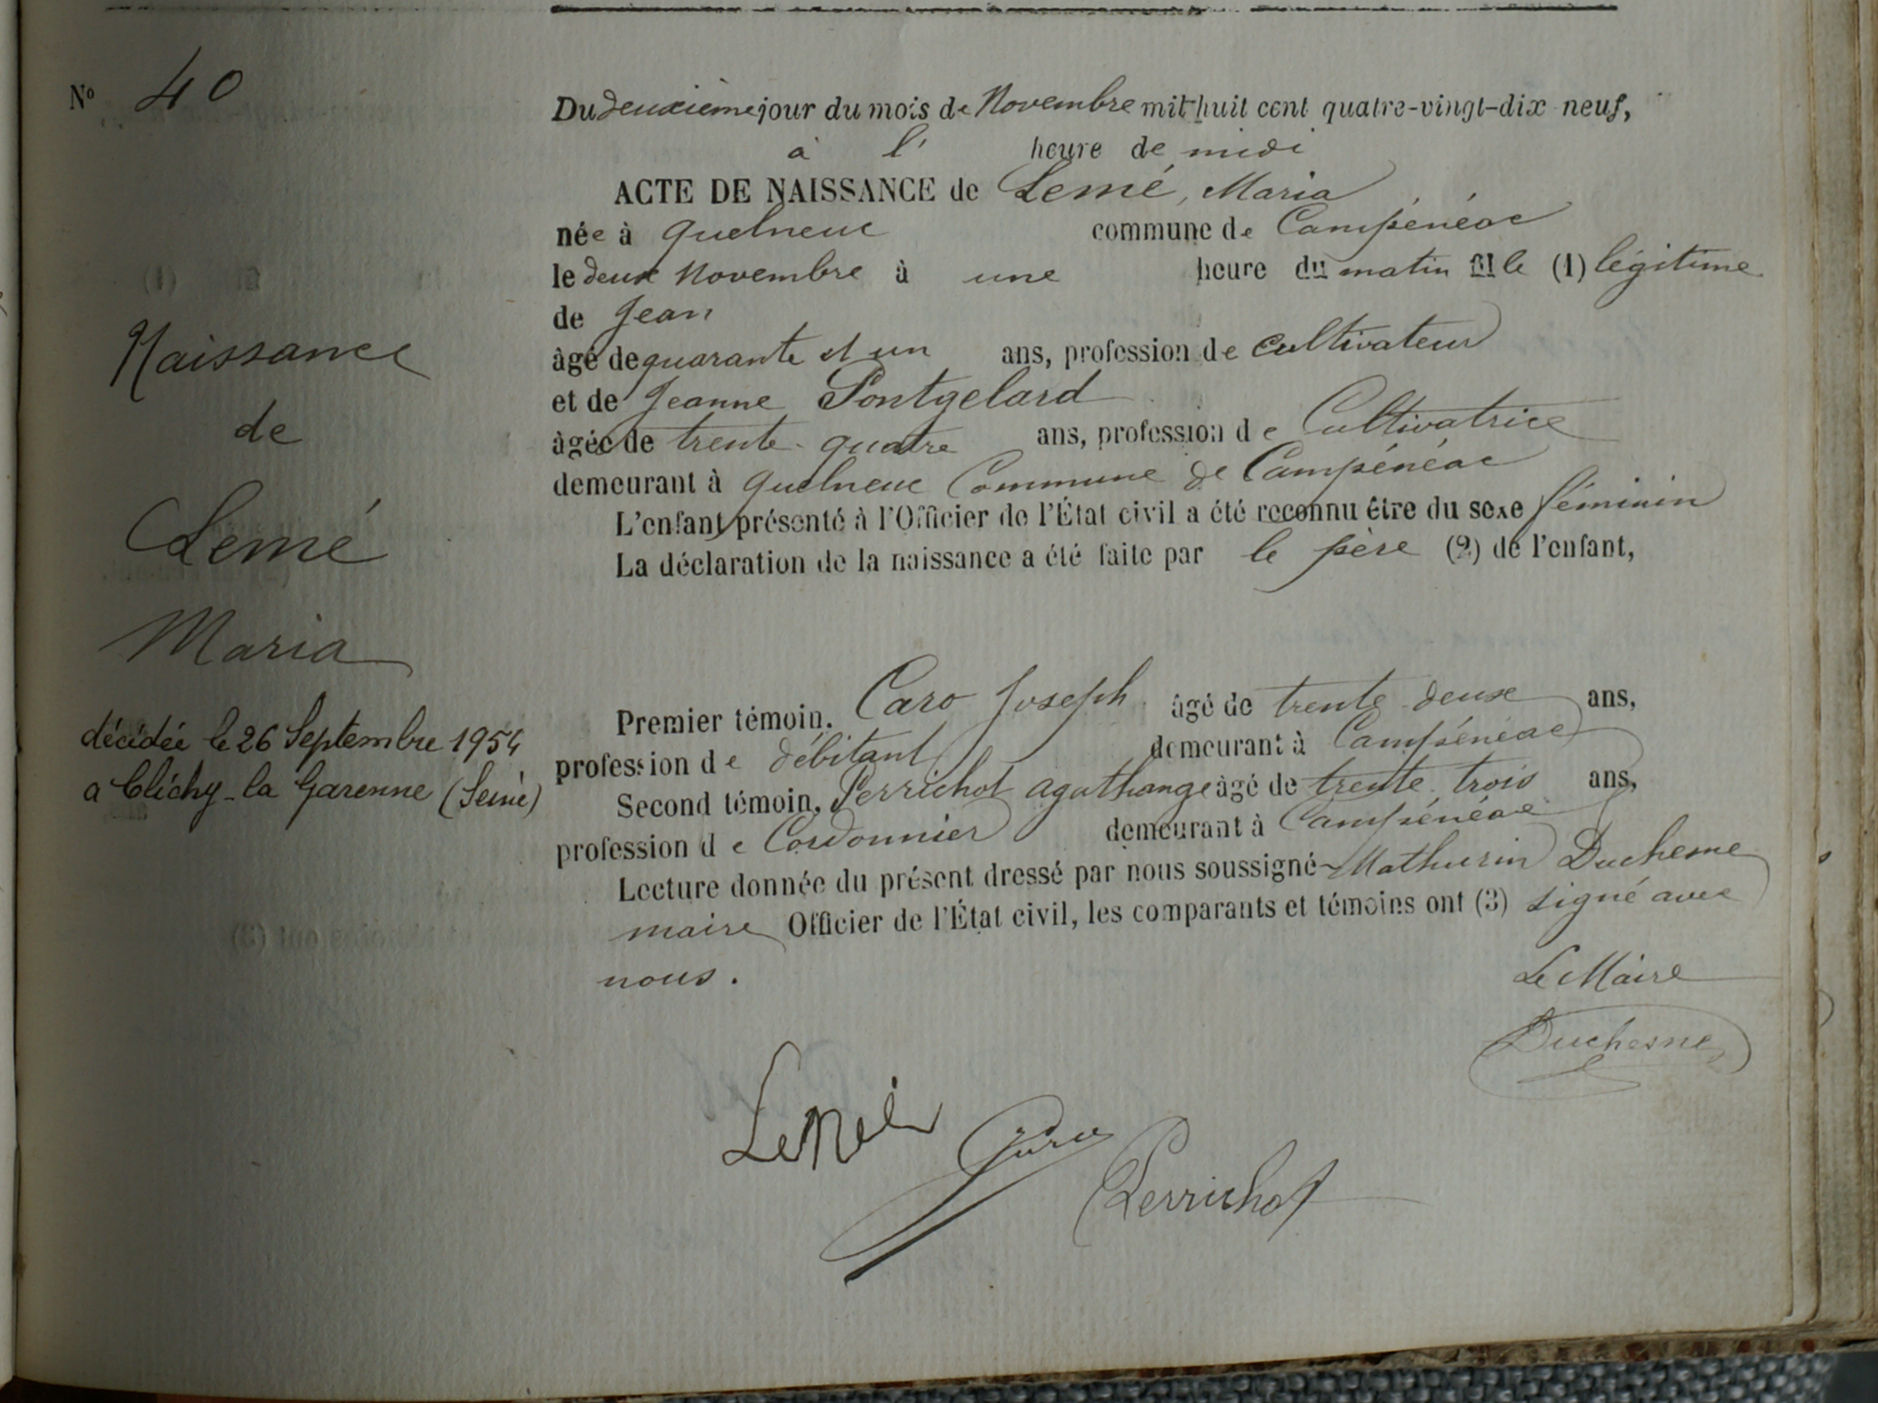 N° 40
Naissance
de
Lemé
Maria
décédée le 26 Septembre 1954
a Clichy-la Garenne (Seine)
Du deuxième jour du mois de Novembre mil huit cent quatre-vingt-dix neuf,
à l' heure de midi
ACTE DE NAISSANCE de Lemé, Maria
née à Quelneuc commune de Campénéac
le deux Novembre à une heure du matin fille (1) légitime
de Jean
âgé de quarante et un ans, profession de cultivateur
et de Jeanne Pontgelard
âgée de trente-quatre ans, profession de Cultivatrice
demeurant à Quelneuc Commune de Campénéac
L'enfant présenté à l'Officier de l'État civil a été reconnu être du sexe féminin
La déclaration de la naissance a été faite par le père (2) de l'enfant,
Premier témoin, Caro Joseph âgé de trente-deux ans,
profession de débitant demeurant à Campénéac
Second témoin, Perrichot agathange âgé de trente-trois ans,
profession de Cordonnier demeurant à Campénéac
Lecture donnée du présent dressé par nous soussigné Mathurin Duchesne
maire Officier de l'État civil, les comparants et témoins ont (3) signé avec
nous.
Le Maire
Duchesne
Lemé
Caro
Perrichot